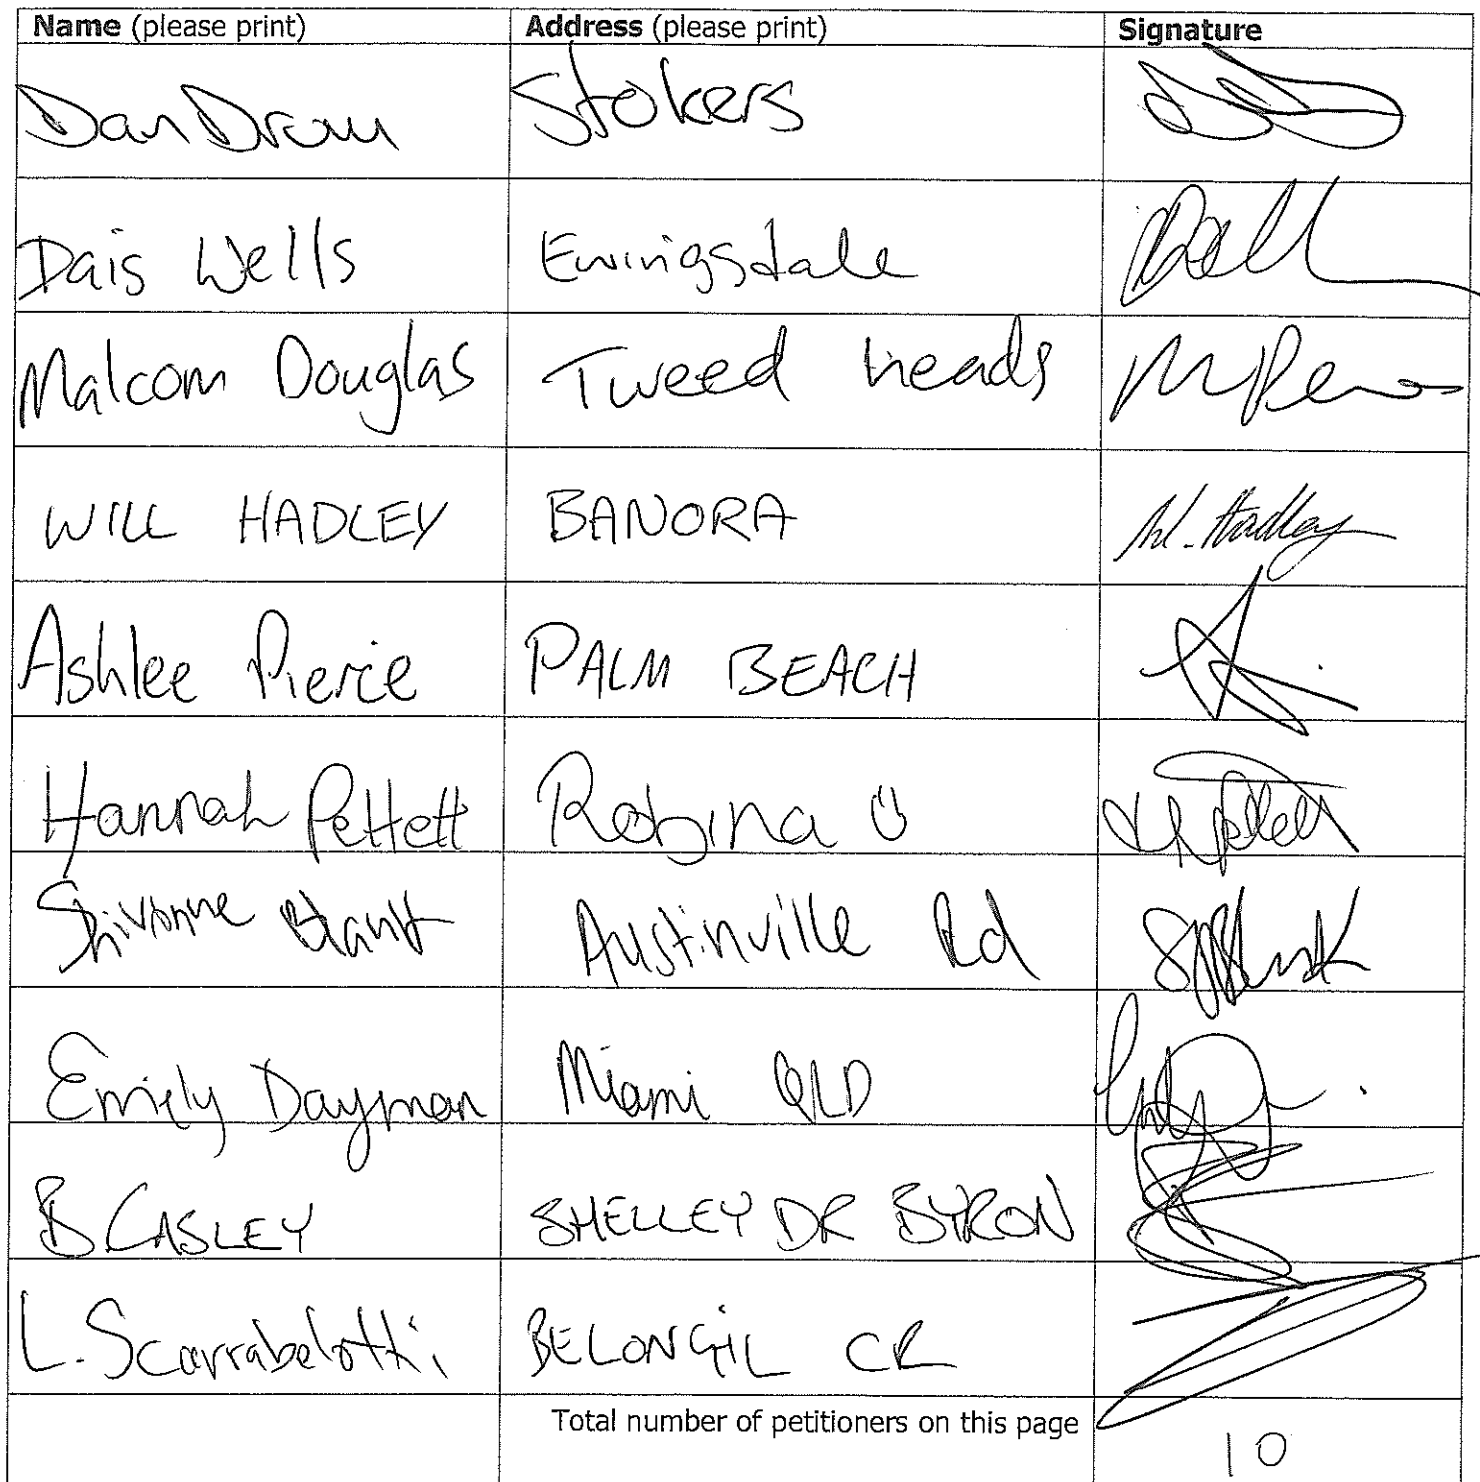 Name (please print) Address (please print) Signature
Dan Stokers
Dais Wells Ewingsdale
Malcom Douglas Tweed heads
WILL HADLEY BANORA W. Hadley
Ashlee Pierce PALM BEACH
Hannah Pettett Robina
Shivonne Austinville Rd
Emily Dayman Miami QLD
B CASLEY SHELLEY DR BYRON
L. Scarrabelotti BELONGIL CR
Total number of petitioners on this page 10